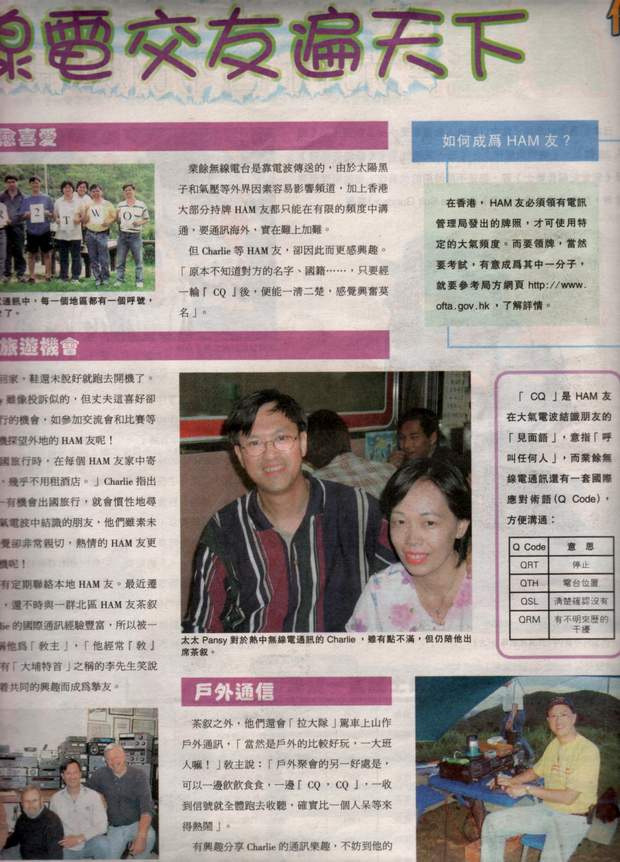 線電交友遍天下
愈喜愛
R 2 T W O
通訊中，每一個地區都有一個呼號，
了。
業餘無線電台是靠電波傳送的，由於太陽黑
子和氣壓等外界因素容易影響頻道，加上香港
大部分持牌 HAM 友都只能在有限的頻度中溝
通，要通訊海外，實在難上加難。
但 Charlie 等 HAM 友，卻因此而更感興趣。
「原本不知道對方的名字、國籍……，只要經
一輪「 CQ 」後，便能一清二楚，感覺興奮莫
名」。
如何成爲 HAM 友？
在香港， HAM 友必須領有電訊
管理局發出的牌照，才可使用特
定的大氣頻度。而要領牌，當然
要考試，有意成爲其中一分子，
就要參考局方網頁 http://www.
ofta.gov.hk ，了解詳情。
旅遊機會
回家，鞋還未脫好就跑去開機了。
y 雖像投訴似的，但丈夫這喜好卻
行的機會，如參加交流會和比賽等
機探望外地的 HAM 友呢！
國旅行時，在每個 HAM 友家中寄
，幾乎不用租酒店。」Charlie 指出
一有機會出國旅行，就會慣性地尋
氣電波中結識的朋友，他們雖素未
覺卻非常親切，熱情的 HAM 友更
機呢！
有定期聯絡本地 HAM 友。最近遷
，還不時與一群北區 HAM 友茶叙
lie 的國際通訊經驗豐富，所以被一
稱他爲「教主」，「他經常『教』
有「大埔特首」之稱的李先生笑說
着共同的興趣而成爲摯友。
太太 Pansy 對於熱中無線電通訊的 Charlie ，雖有點不滿，但仍陪他出
席茶叙。
「 CQ 」是 HAM 友
在大氣電波結識朋友的
「見面語」，意指「呼
叫任何人」，而業餘無
線電通訊還有一套國際
應對術語(Q Code)，
方便溝通：
Q Code 意 思
QRT 停止
QTH 電台位置
QSL 清楚確認沒有
QRM 有不明來歷的
干擾
戶外通信
茶叙之外，他們還會「拉大隊」駕車上山作
戶外通訊，「當然是戶外的比較好玩，一大班
人嘛！」教主說：「戶外聚會的另一好處是，
可以一邊飲飲食食，一邊『 CQ ， CQ 』，一收
到信號就全體跑去收聽，確實比一個人呆等來
得熱鬧」。
有興趣分享 Charlie 的通訊樂趣，不妨到他的